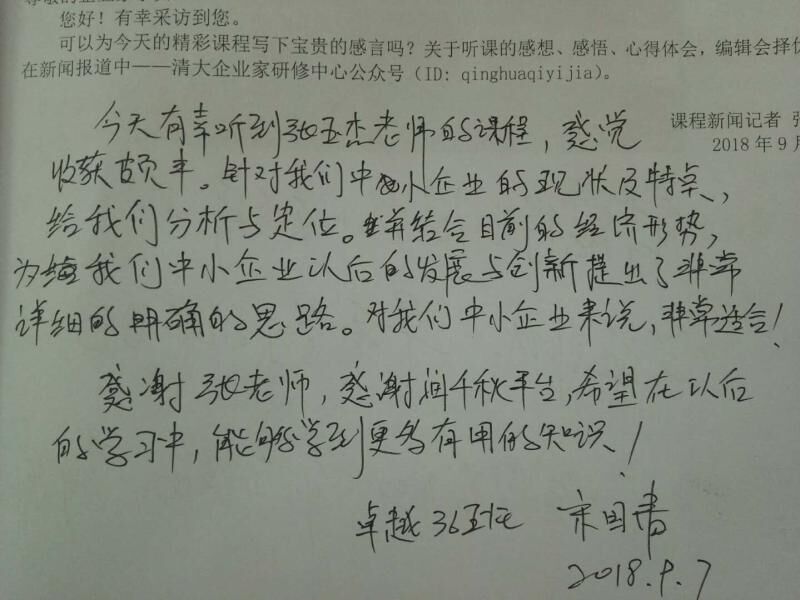 您好！有幸采访到您。
可以为今天的精彩课程写下宝贵的感言吗？关于听课的感想、感悟、心得体会，编辑会择优
在新闻报道中——清大企业家研修中心公众号（ID: qinghuaqiyijia）。
课程新闻记者 张
2018年9月
今天有幸听到张玉杰老师的课程，感觉
收获颇丰。针对我们中小企业的现状及特点、
给我们分析与定位。并结合目前的经济形势，
为我们中小企业以后的发展与创新提出了非常
详细的明确的思路。对我们中小企业来说，非常适合！
感谢张老师，感谢润千秋平台，希望在以后
的学习中，能够学到更多有用的知识！
卓越36班 宋国青
2018.9.7